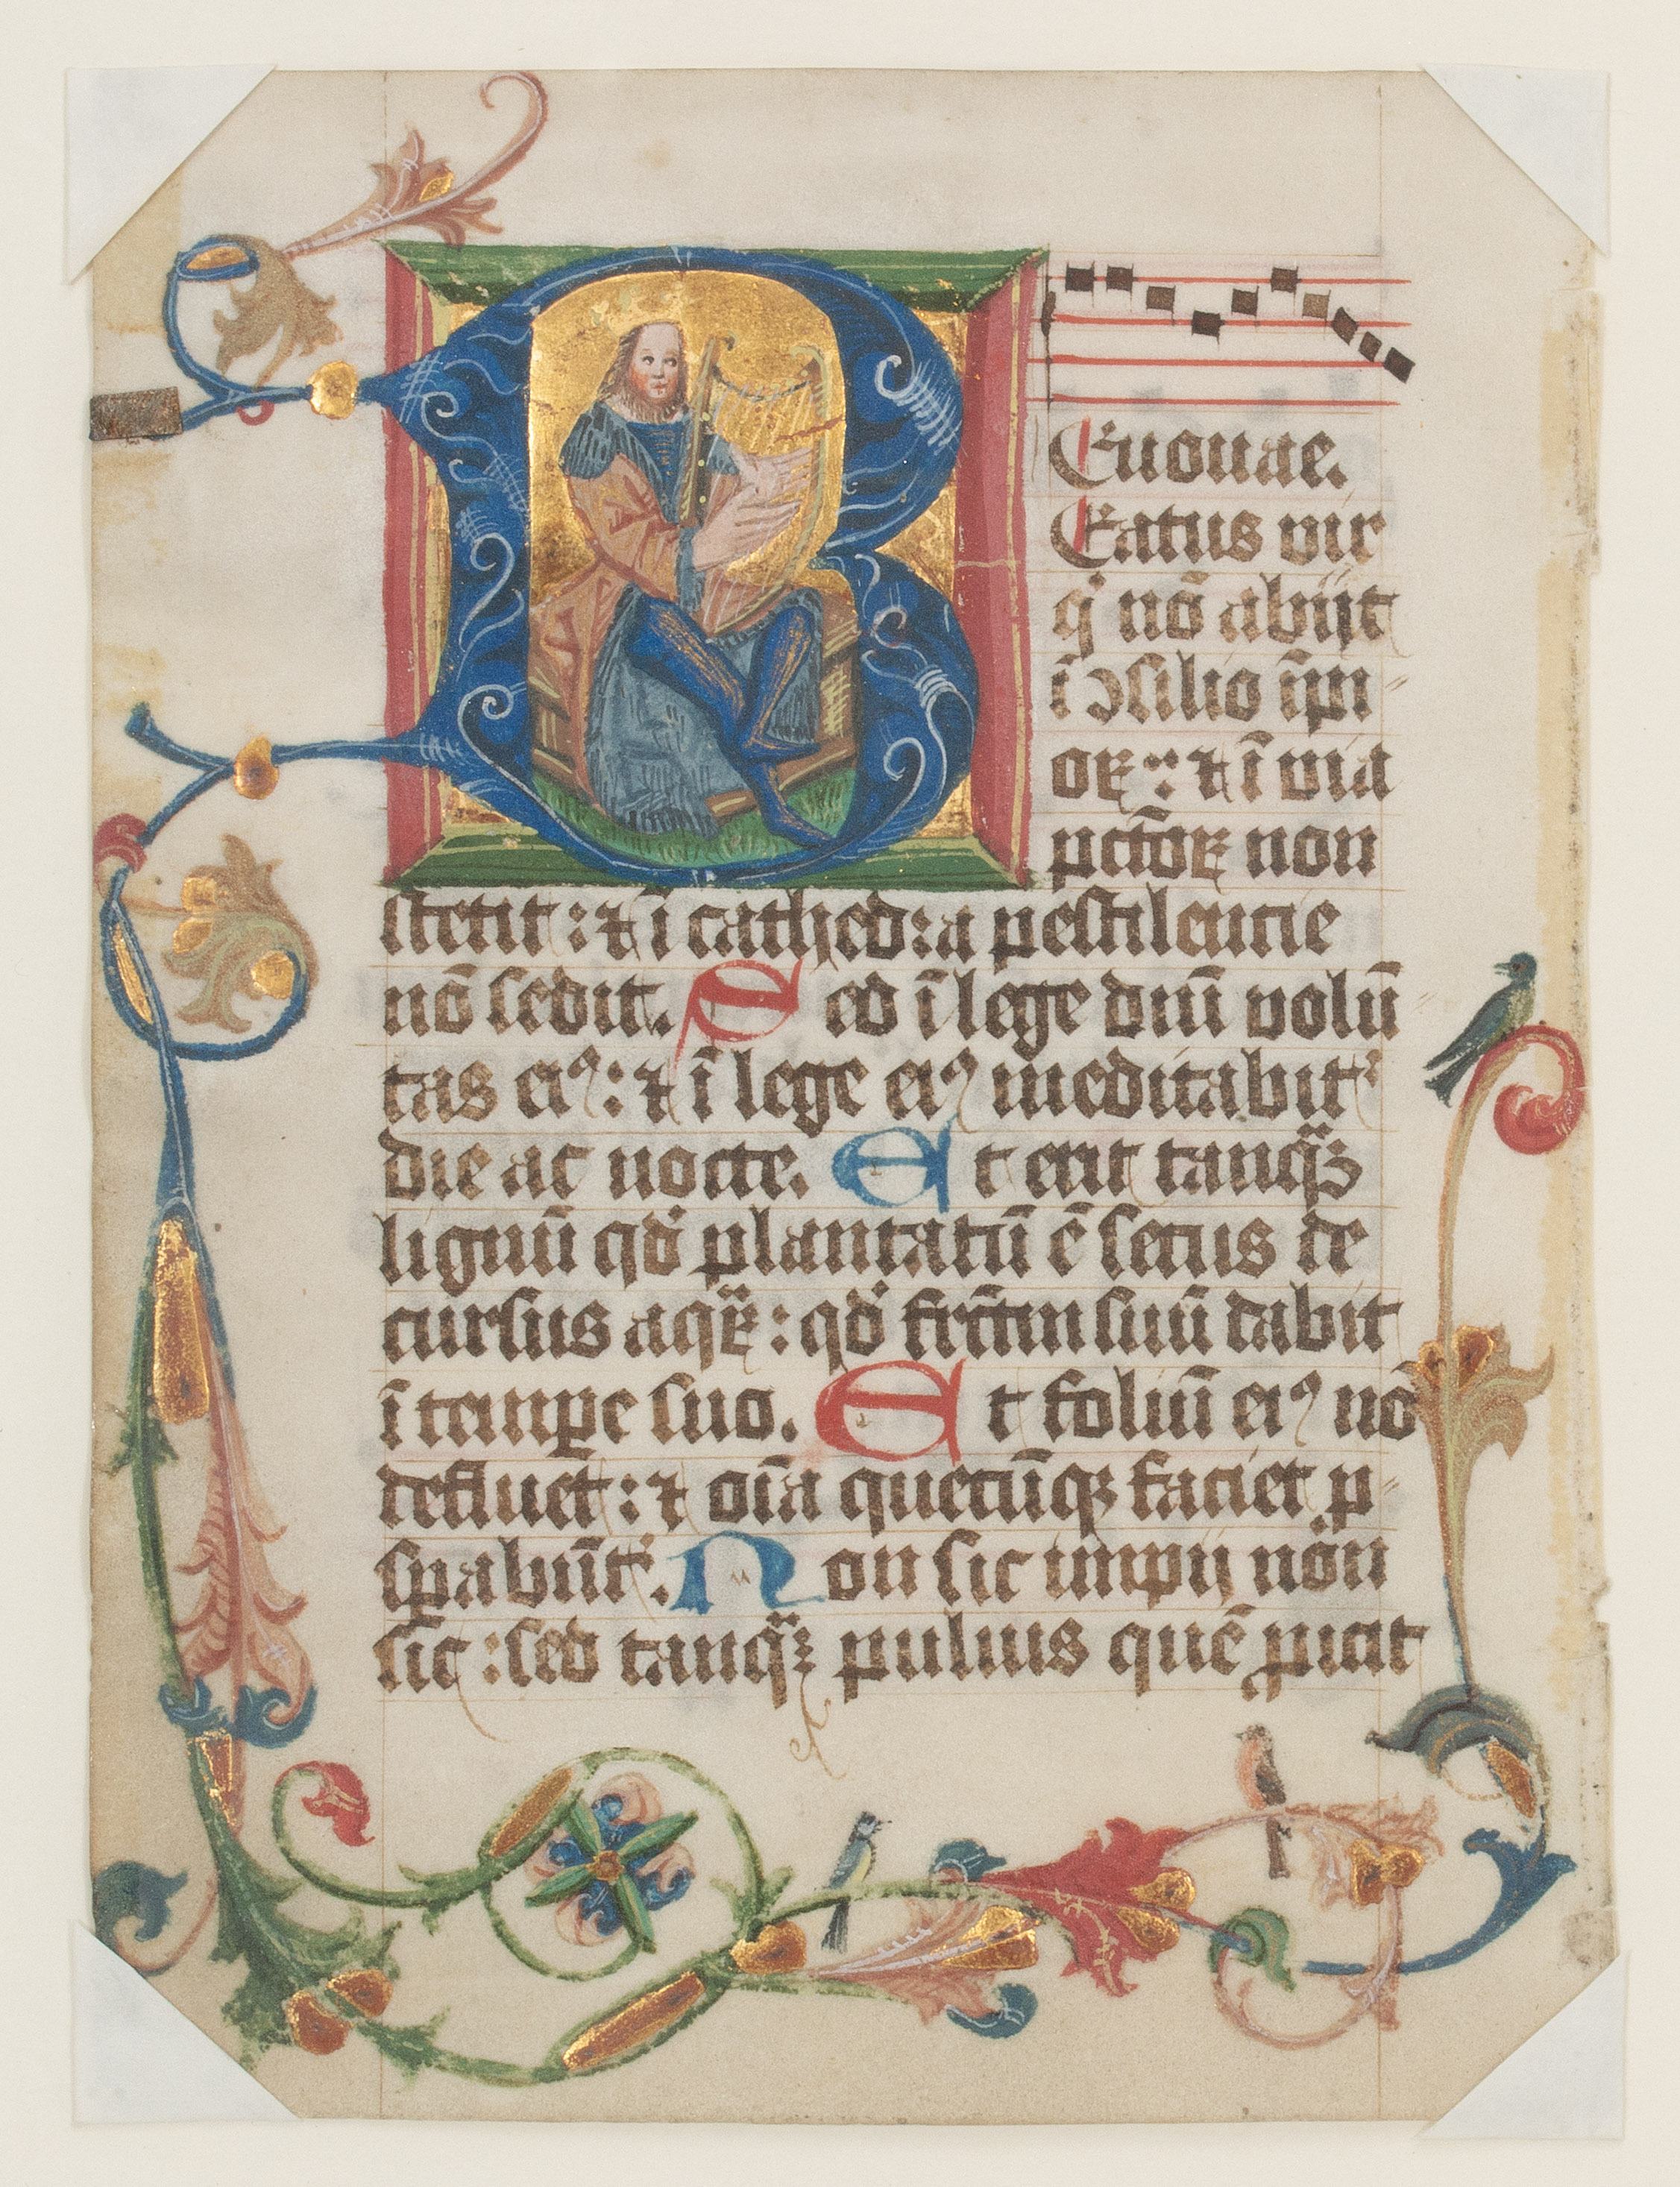 B
Euouae.
Eatus vir
qͥ nō abijt
ī ↄsilio īpi
oꝝ: ⁊ ī via
pctōꝝ non
stetit: ⁊ ī cathedra pestilencie
nō sedit. Sed ī lege dn̄i volū
tas eiꝰ: ⁊ ī lege eiꝰ meditabit᷑
die ac nocte. Et erit tanqᷓꝫ
lignū qd̓ plantatū ē secus de
cursus aqᷓꝝ: qd̓ fructū suū dabit
ī tempe̱ suo. Et foliū eiꝰ nō
defluet: ⁊ oīa quecūqꝫ faciet ꝓ
sꝑabūt᷑. Non sic impij nōn
sic: sed tanqᷓꝫ puluis quē ꝓicit